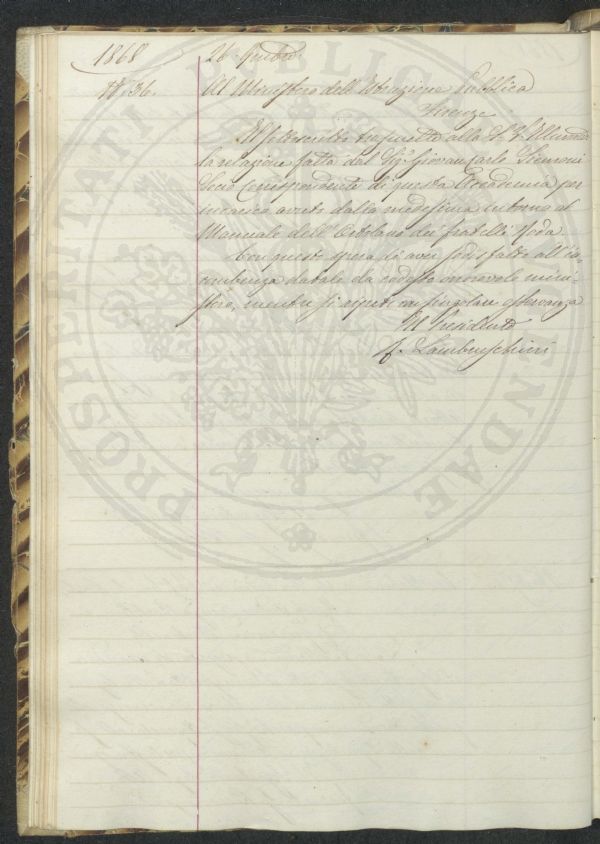 1868
N. 36.
26 Giugno
Al Ministero dell'Istruzione Pubblica
Firenze
Il sottoscritto trasmette alla S. V. Illuma
la relazione fatta dal Sigr Giovan Carlo Siemoni
Socio Corrispondente di questa Accademia per
incarico avuto dalla medesima intorno al
Manuale dell'Ortolano dei fratelli Roda.
Con questo spera di aver sodisfatto all'in-
cumbenza datale da codesto onorevole mini-
stero, mentre si ripete con singolare osservanza
Il Presidente
f. Lambruschini
PROSPERITATI PUBLICAE AUGENDAE